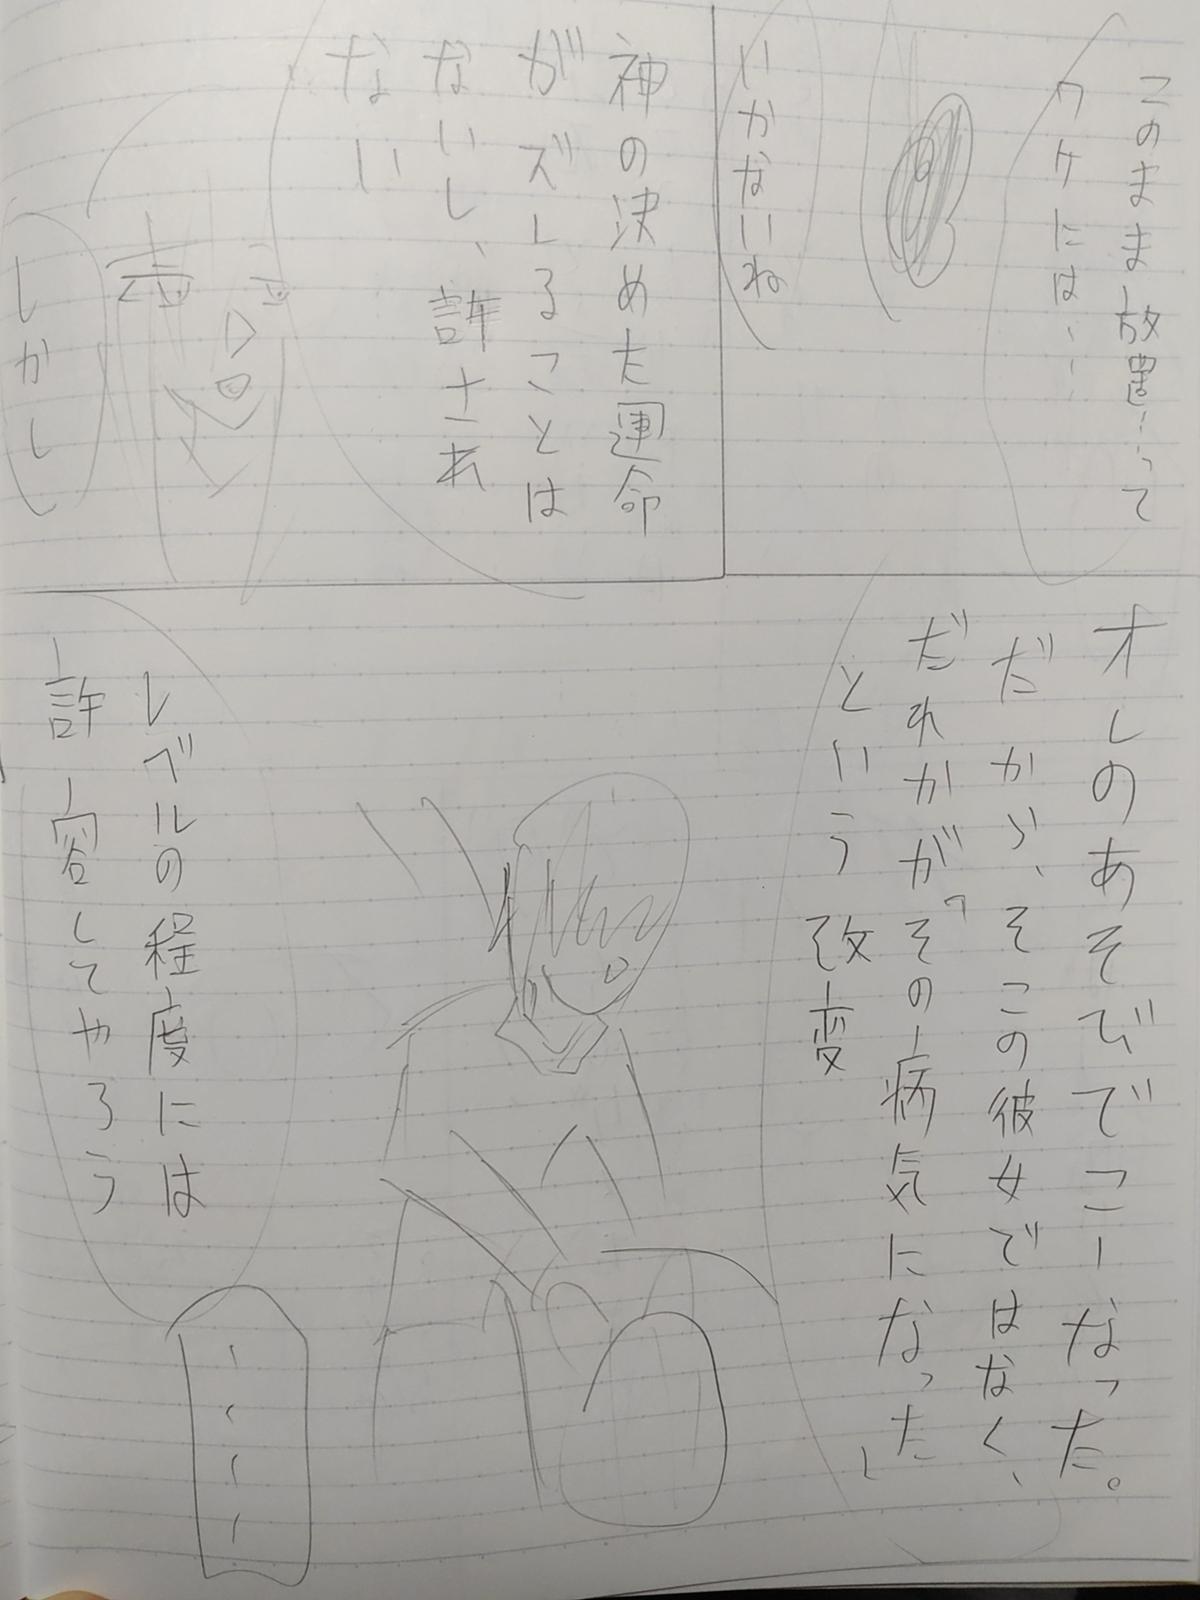 このまま放置…って
ワケには…
いかないね
神の決めた運命
がズレることは
ないし、許され
ない
しかし
オレのあそびでこーなった。
だから、そこの彼女ではなく、
だれかが「その病気になった」
という改変
レベルの程度には
許容してやろう
…